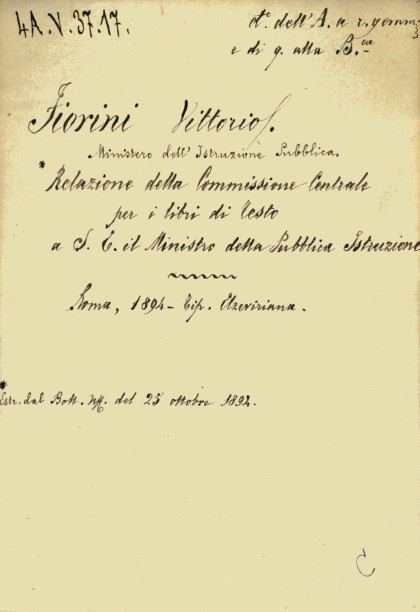 4A.V.37.17.
d.º dell'A. a r. gemm
e di g. alla B.ca
Fiorini Vittorio.
Ministero dell'Istruzione Pubblica.
* Relazione della Commissione Centrale
per i libri di Testo
a S. E. il Ministro della Pubblica Istruzione
Roma, 1894 - Tip. Elzeviriana.
*
Estr. dal Boll. Uff. del 25 ottobre 1894.
C